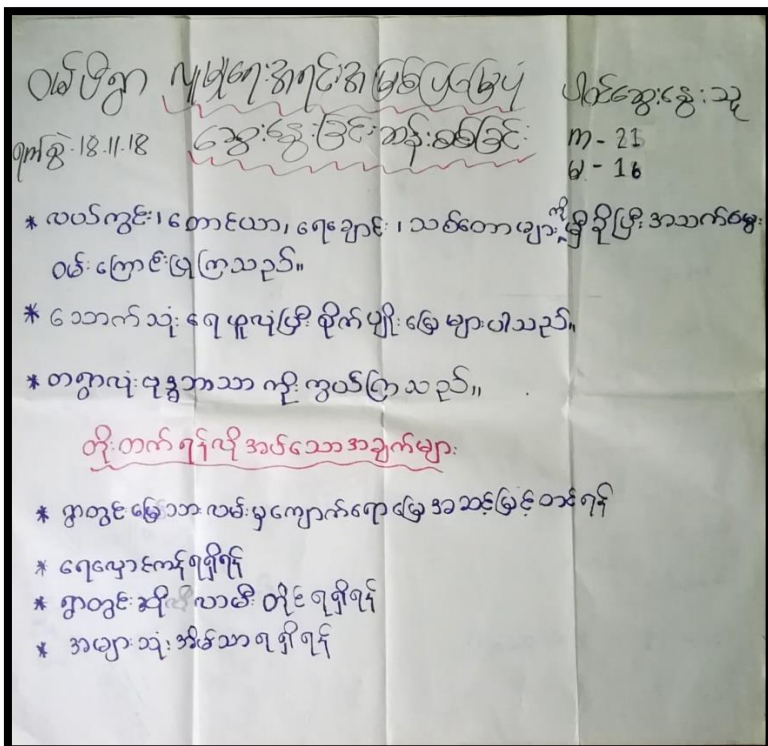 ဝမ်ပိရွာ လူမှုရေးအရင်းအမြစ်ပြမြေပုံ ပါဝင်ဆွေးနွေးသူ
ရက်စွဲ - 18.11.18 ဆွေးနွေးခြင်းဆန်းစစ်ခြင်း m - 21
မ - 16
* လယ်ကွင်း၊ တောင်ယာ၊ ရေချောင်း၊ သစ်တောများကို မှီခိုပြီး အသက်မွေး
ဝမ်းကြောင်းပြုကြသည်။
* သောက်သုံးရေဖူလုံပြီး စိုက်ပျိုးမြေများပါသည်။
* တရွာလုံးဗုဒ္ဓဘာသာ ကိုးကွယ်ကြသည်။
တိုးတက်ရန်လိုအပ်သောအချက်များ
* ရွာတွင်းမြေသားလမ်းမှကျောက်ရောမြေအဆင့်မြှင့်တင်ရန်
* ရေလှောင်ကန်ရရှိရန်
* ရွာတွင်းဆိုလာမီးတိုင်ရရှိရန်
* အများသုံးအိမ်သာရရှိရန်